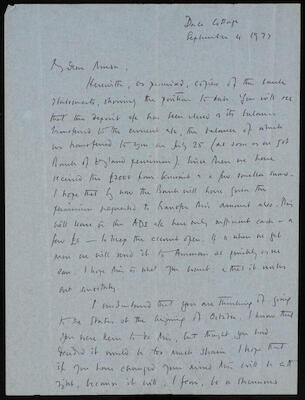 Dale Cottage
September 4 1977
My dear
Herewith, as promised, copies of the bank
statements, showing the position to date. You will see
that the deposit a/c has been closed & its balance
transferred to the current a/c, the balance of which
was transferred to you on July 25 (as soon as we got
Bank of England permission). Since then we have
received the £2000 from & a few smaller sums.
I hope that by now the Bank will have given the
permission requested to transfer this amount also. This
will leave in the a/c here only sufficient cash – a
few £s – to keep the account open. If & when we get
more we will send it to as quickly as we
can. I hope this is what you want, & that it works
out smoothly.
I understand that you are thinking of going
to the States at the beginning of October. I know that
you were keen to do this, but thought you had
decided it would be too much strain. I hope that
if you have changed your mind this will be all
right, because it will, I fear, be a strenuous